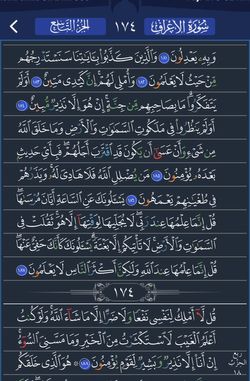 سُورَةُ الأَعْرَافِ ١٧٤ الجُزْءُ التَّاسِعُ
وَبِهِۦ يَعْدِلُونَ ١٨١ وَٱلَّذِينَ كَذَّبُوا۟ بِـَٔايَٰتِنَا سَنَسْتَدْرِجُهُم
مِّنْ حَيْثُ لَا يَعْلَمُونَ ١٨٢ وَأُمْلِى لَهُمْ إِنَّ كَيْدِى مَتِينٌ ١٨٣ أَوَلَمْ
يَتَفَكَّرُوا۟ مَا بِصَاحِبِهِم مِّن جِنَّةٍ إِنْ هُوَ إِلَّا نَذِيرٌ مُّبِينٌ ١٨٤
أَوَلَمْ يَنظُرُوا۟ فِى مَلَكُوتِ ٱلسَّمَٰوَٰتِ وَٱلْأَرْضِ وَمَا خَلَقَ ٱللَّهُ
مِن شَىْءٍ وَأَنْ عَسَىٰٓ أَن يَكُونَ قَدِ ٱقْتَرَبَ أَجَلُهُمْ فَبِأَىِّ حَدِيثٍ
بَعْدَهُۥ يُؤْمِنُونَ ١٨٥ مَن يُضْلِلِ ٱللَّهُ فَلَا هَادِىَ لَهُۥ وَيَذَرُهُمْ
فِى طُغْيَٰنِهِمْ يَعْمَهُونَ ١٨٦ يَسْـَٔلُونَكَ عَنِ ٱلسَّاعَةِ أَيَّانَ مُرْسَىٰهَا
قُلْ إِنَّمَا عِلْمُهَا عِندَ رَبِّى لَا يُجَلِّيهَا لِوَقْتِهَآ إِلَّا هُوَ ثَقُلَتْ فِى
ٱلسَّمَٰوَٰتِ وَٱلْأَرْضِ لَا تَأْتِيكُمْ إِلَّا بَغْتَةً يَسْـَٔلُونَكَ كَأَنَّكَ حَفِىٌّ عَنْهَا
قُلْ إِنَّمَا عِلْمُهَا عِندَ ٱللَّهِ وَلَٰكِنَّ أَكْثَرَ ٱلنَّاسِ لَا يَعْلَمُونَ ١٨٧
١٧٤
قُل لَّآ أَمْلِكُ لِنَفْسِى نَفْعًا وَلَا ضَرًّا إِلَّا مَا شَآءَ ٱللَّهُ وَلَوْ كُنتُ
أَعْلَمُ ٱلْغَيْبَ لَٱسْتَكْثَرْتُ مِنَ ٱلْخَيْرِ وَمَا مَسَّنِىَ ٱلسُّوٓءُ
إِنْ أَنَا۠ إِلَّا نَذِيرٌ وَبَشِيرٌ لِّقَوْمٍ يُؤْمِنُونَ ١٨٨ هُوَ ٱلَّذِى خَلَقَكُم